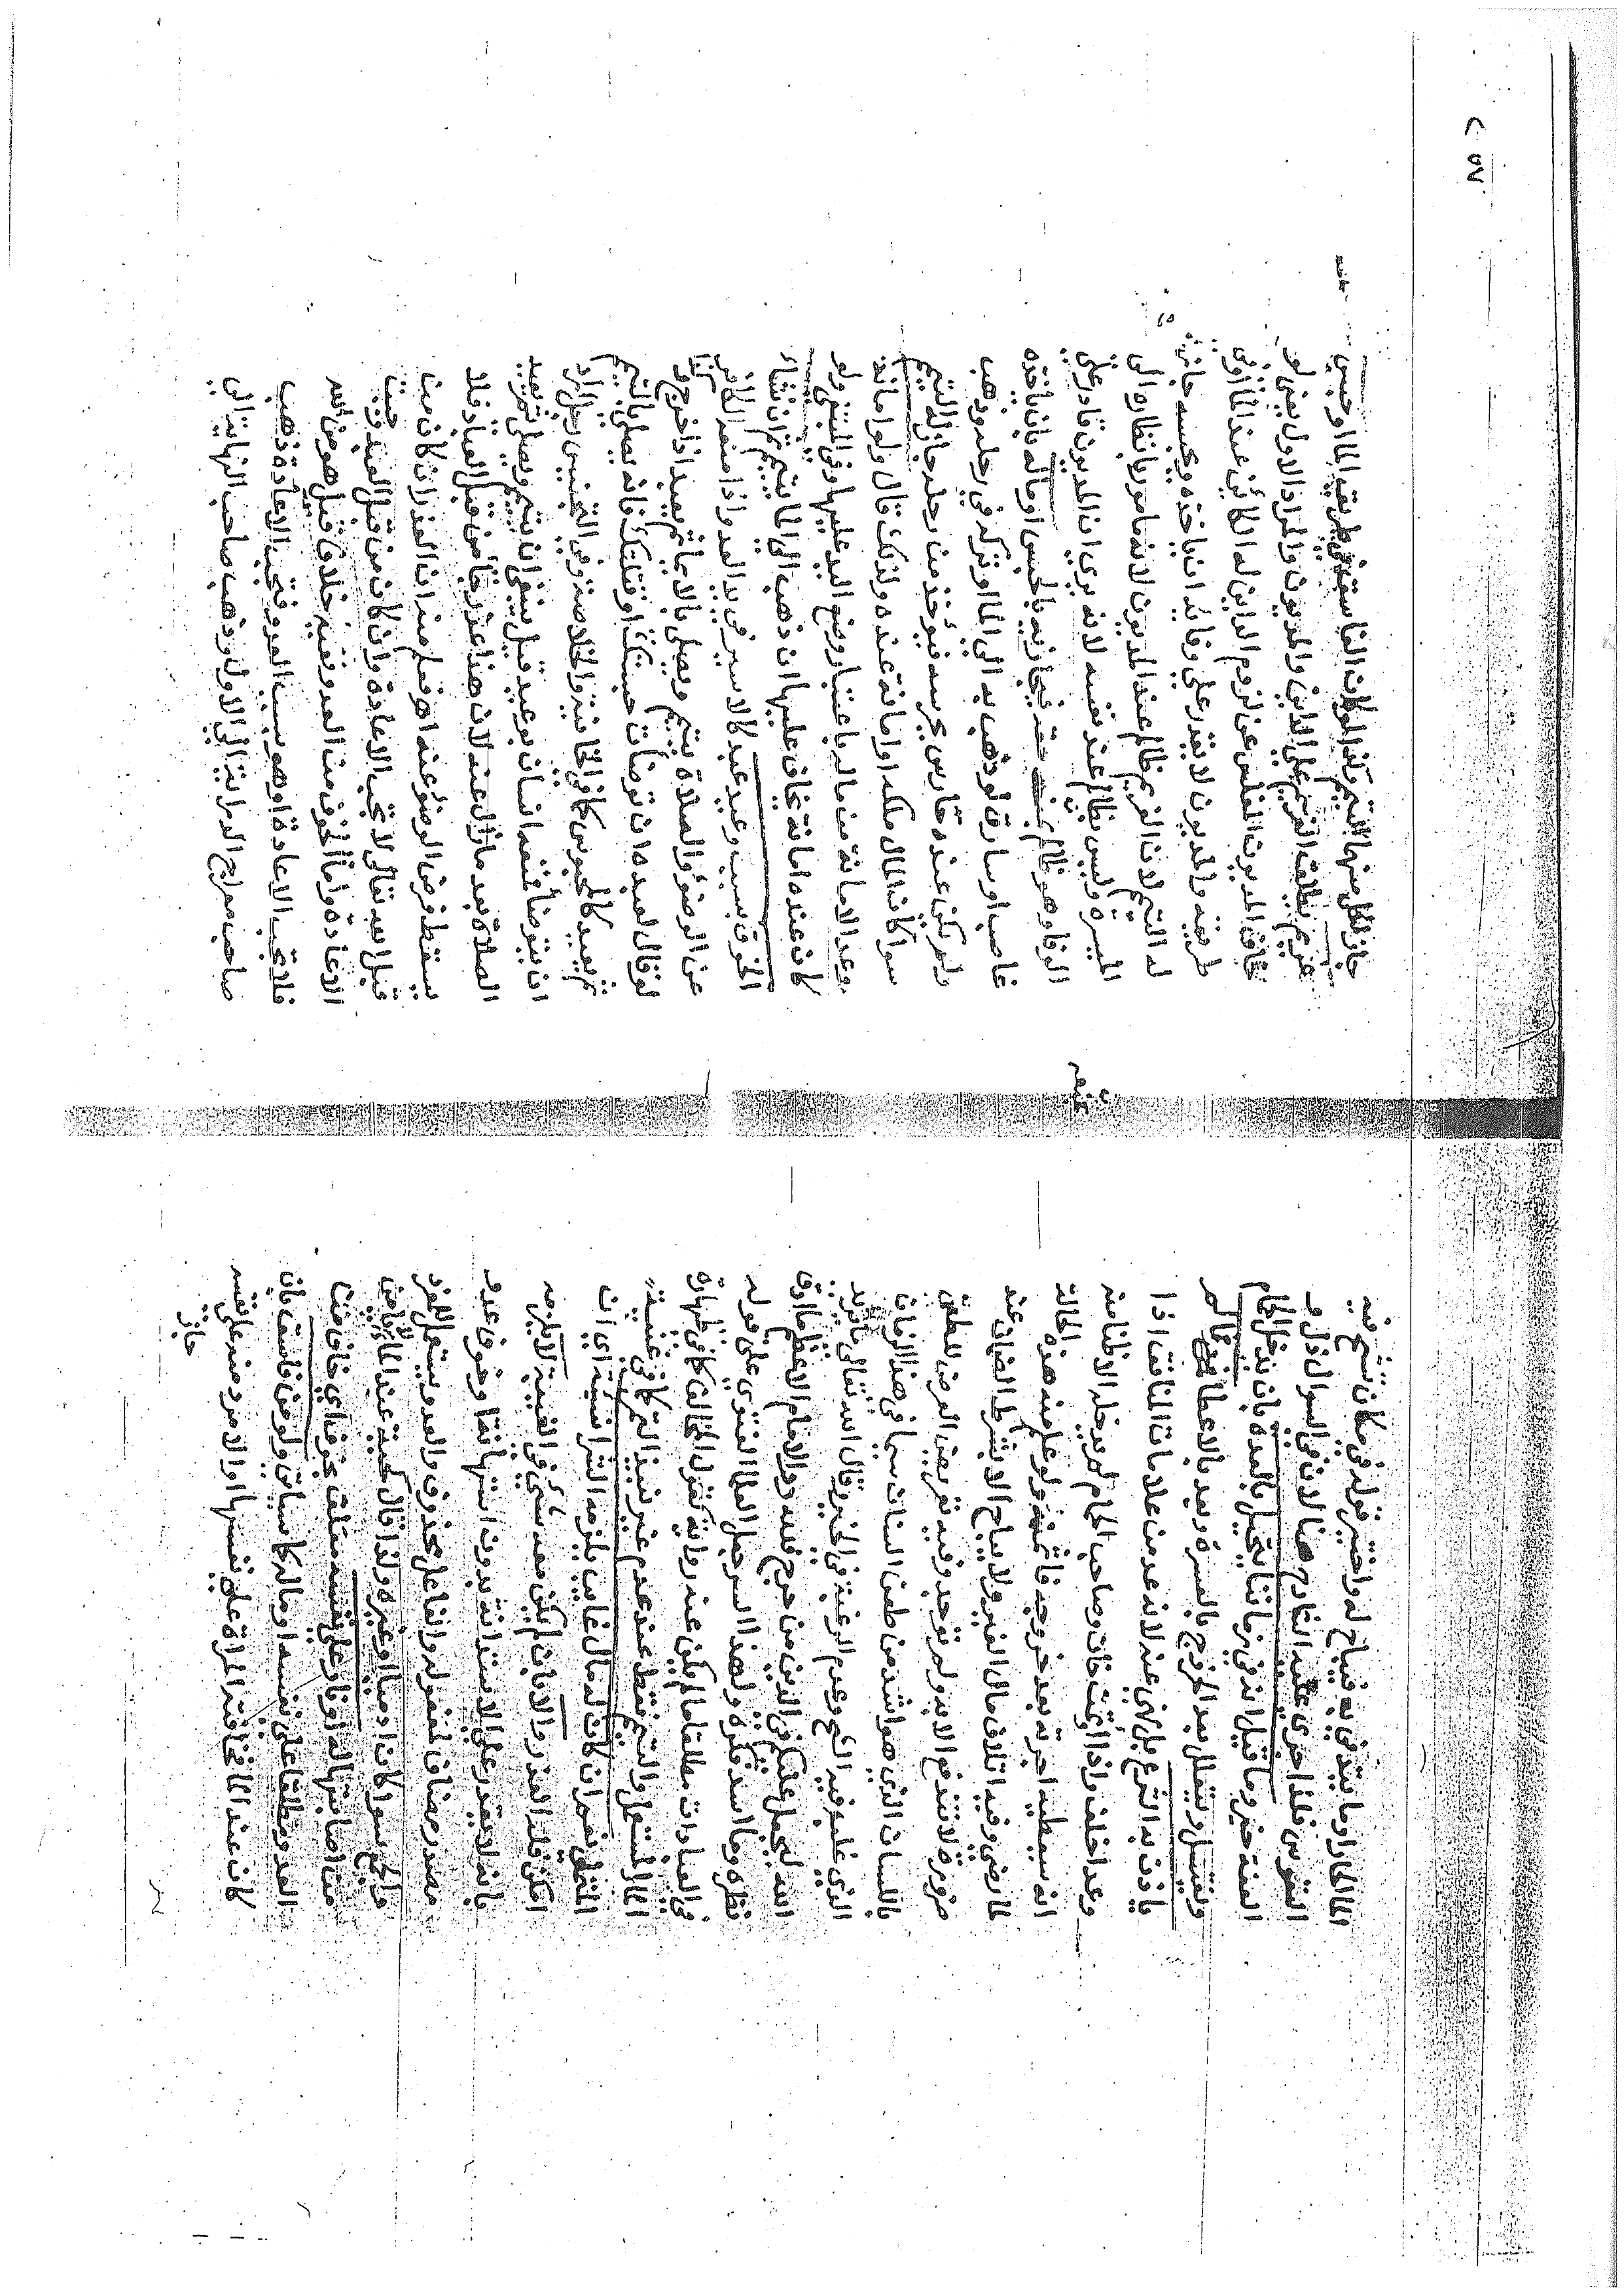 الما الحار او ما يتدفى به فيباح له واختير قوله في مكان تشح فيه
النفوس فلذا جرى عليه القادر هنا لان في السوال ذل و
العفة خير وما قيل انه في زماننا يتحيل بالعدة بان يدخل الحمام
ويغتسل ويتعلل بعد الخروج بالعسرة ويعد بالاعطا فمما لم
ياذن به الشرع بل نهي عنه لانه عد من علامات المنافق اذا
وعد اخلف واذا اؤتمن خان وصاحب الحمام لم يدخله الا ظنا منه
انه سيعطيه اجرته بعد خروجه فائتمنه ولو علم منه هذه الحالة
لما رضي وفيه اتلاف مال الغير ولا يباح الا بشرط الضمان عند
ضرورة لا تندفع الا به ولم توجد وفيه تعريض العرض للطعن
باللسان الذي هو اشد من طعن السنان سيما في هذا الزمان
الذي غلب فيه الشح وعدم الرغبة في الخير وقال الله تعالى ما يريد
الله ليجعل عليكم في الدين من حرج فلله در الامام الاعظم ما ادق
نظره وما اسد فكره ولهذا السر جعل العلما الفتوى على قوله
في العبادات مطلقا ما لم يكن عنه رواية كقول المخالف كما في طهارة
الما المستعمل والتيمم فقط عند عدم غير نبيذ التمر كما في غنية
المتملي نعم ان كان له مال غايب يلزمه الشرا نسيئة اي ان
امكن والا بان لم يكن معه شيء في الغيبة لا يلزمه
بانه لا يقدر على الاستدانة بدون وخوف عدو
مصدر مضاف لمفعوله والفاعل محذوف والعدو يستعمل للمفرد
والجمع سوا كان ادميا او غيره ولذا قال كحية عند الما
من اصابتها له او نار على نفسه متعلق بخوف اي خاف من
العدو مطلقا على نفسه او ماله كما سياتي ولو من فاسق بان
كان عند الما خافت المراة على نفسها او الامرد منه على نفسه
جاز
جاز لكل منهما التيمم الفاسق في طريق الما او حبس
غريم يطلق الغريم على الداين والمديون والمراد الاول يعني لو
خاف المديون المفلس عن لزوم الداين له الكائن عند الما او في
طريقه والمديون لا يقدر على وفائه ان ياخذه ويحبسه جاز
له التيمم لان الغريم ظالم عند المديون لانه مامور بانظاره الى
الميسرة وليس بظالم عند نفسه لانه يرى ان المديون قادر على
الوفا وهو ظالم حقه فيجازيه بالحبس او ماله بان ياخذه
غاصب او سارق لو ذهب به الى الما او تركه في رحله وذهب
ولم يكن عنده حارس يحرسه فيؤخذ من رحله جاز له التيمم
سوا كان المال ملكه او امانة عنده ولذلك قال ولو امانة
وعد الامانة من ماله باعتبار وضع اليد عليها وفي المبتغى ولو
كان عنده امانة يخاف عليها ان ذهب الى الما يتيمم ثم ان نشاء
الخوف بسبب وعيد عبد كالاسير في يد العدو اذا منعه الكافر
عن الوضوء والصلاة يتيمم ويصلي بالايما ثم يعيد اذا خرج وكذا
لو قال لعبده ان توضات حبستك او قتلتك فانه يصلي بالتيمم
ثم يعيد كالمحبوس كما في الخانية والخلاصة وفي التجنيس رجل اراد
ان يتوضأ فمنعه انسان بوعيد قيل ينبغي ان يتيمم ويصلي ثم يعيد
الصلاة بعد ما زال عنه لان هذا عذر جاء من قبل العباد فلا
يسقط فرض الوضوء عنه اهـ فعلم منه ان العذر ان كان من
قبل الله تعالى لا تجب الاعادة وان كان من قبل العبد وجبت
الاعادة واما الخوف من العدو ففيه خلاف قيل هو من الله
فلا تجب الاعادة او هو بسبب العبد فتجب الاعادة ذهب
صاحب معراج الدراية الى الاول وذهب صاحب النهاية الى